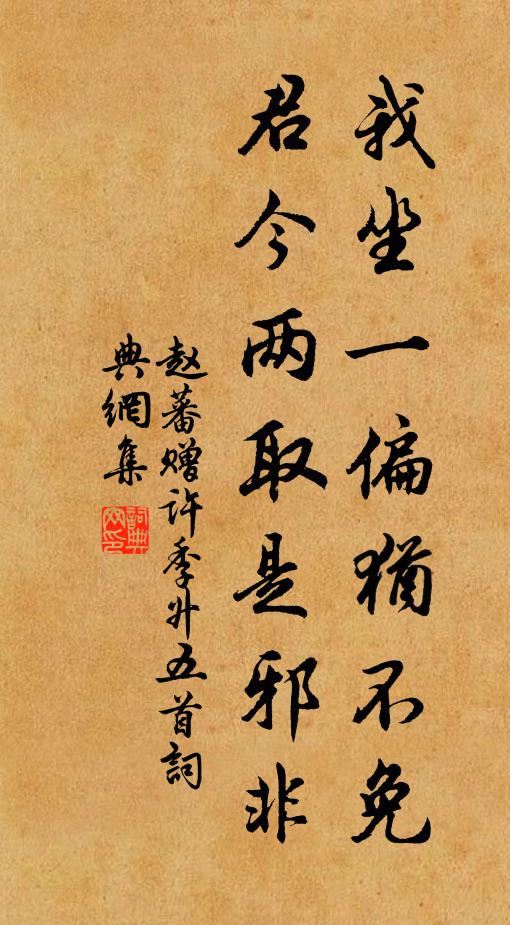 我坐一偏犹不免
君今两取是邪非
赵蕃赠许季升五首詞
典網集
詞典網印